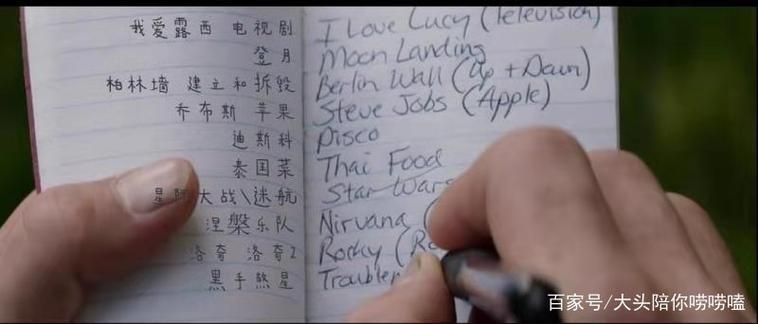 我爱露西 电视剧
登月
柏林墙 建立和拆毁
乔布斯 苹果
迪斯科
泰国菜
星际大战\迷航
涅槃乐队
洛奇 洛奇2
黑手煞星
I Love Lucy (Television)
Moon Landing
Berlin Wall (Up + Down)
Steve Jobs (Apple)
Disco
Thai Food
Star Wars
Nirvana (
Rocky (
百家号/大头陪你唠唠嗑